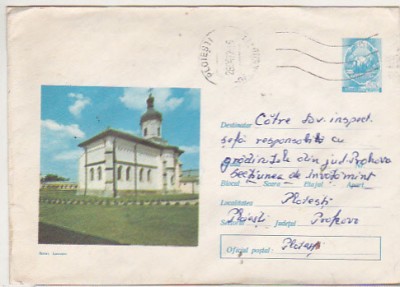 PLOIEȘTI
Destinatar Către tov. inspect.
șefă responsabilă cu
grădinițele din jud. Prahova
Secțiunea de învățămînt
Blocul Scara Etajul Apart.
Localitatea Ploiești
Ploiești Județul Prahova
Oficiul poștal: Ploiești